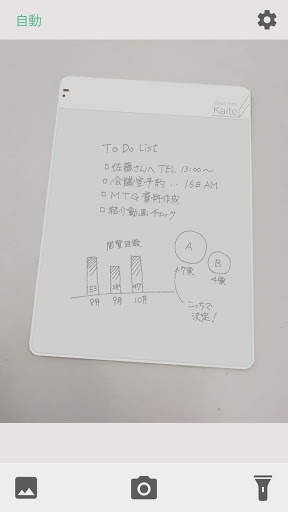 自動
Kaite
To Do List
□佐藤さんへTEL 13:00〜
□会議室予約 … 16日AM
□MTG資料作成
□紹介動画チェック
閲覧回数
A
B
47票
4票
8月 9月 10月
こっちで
決定!